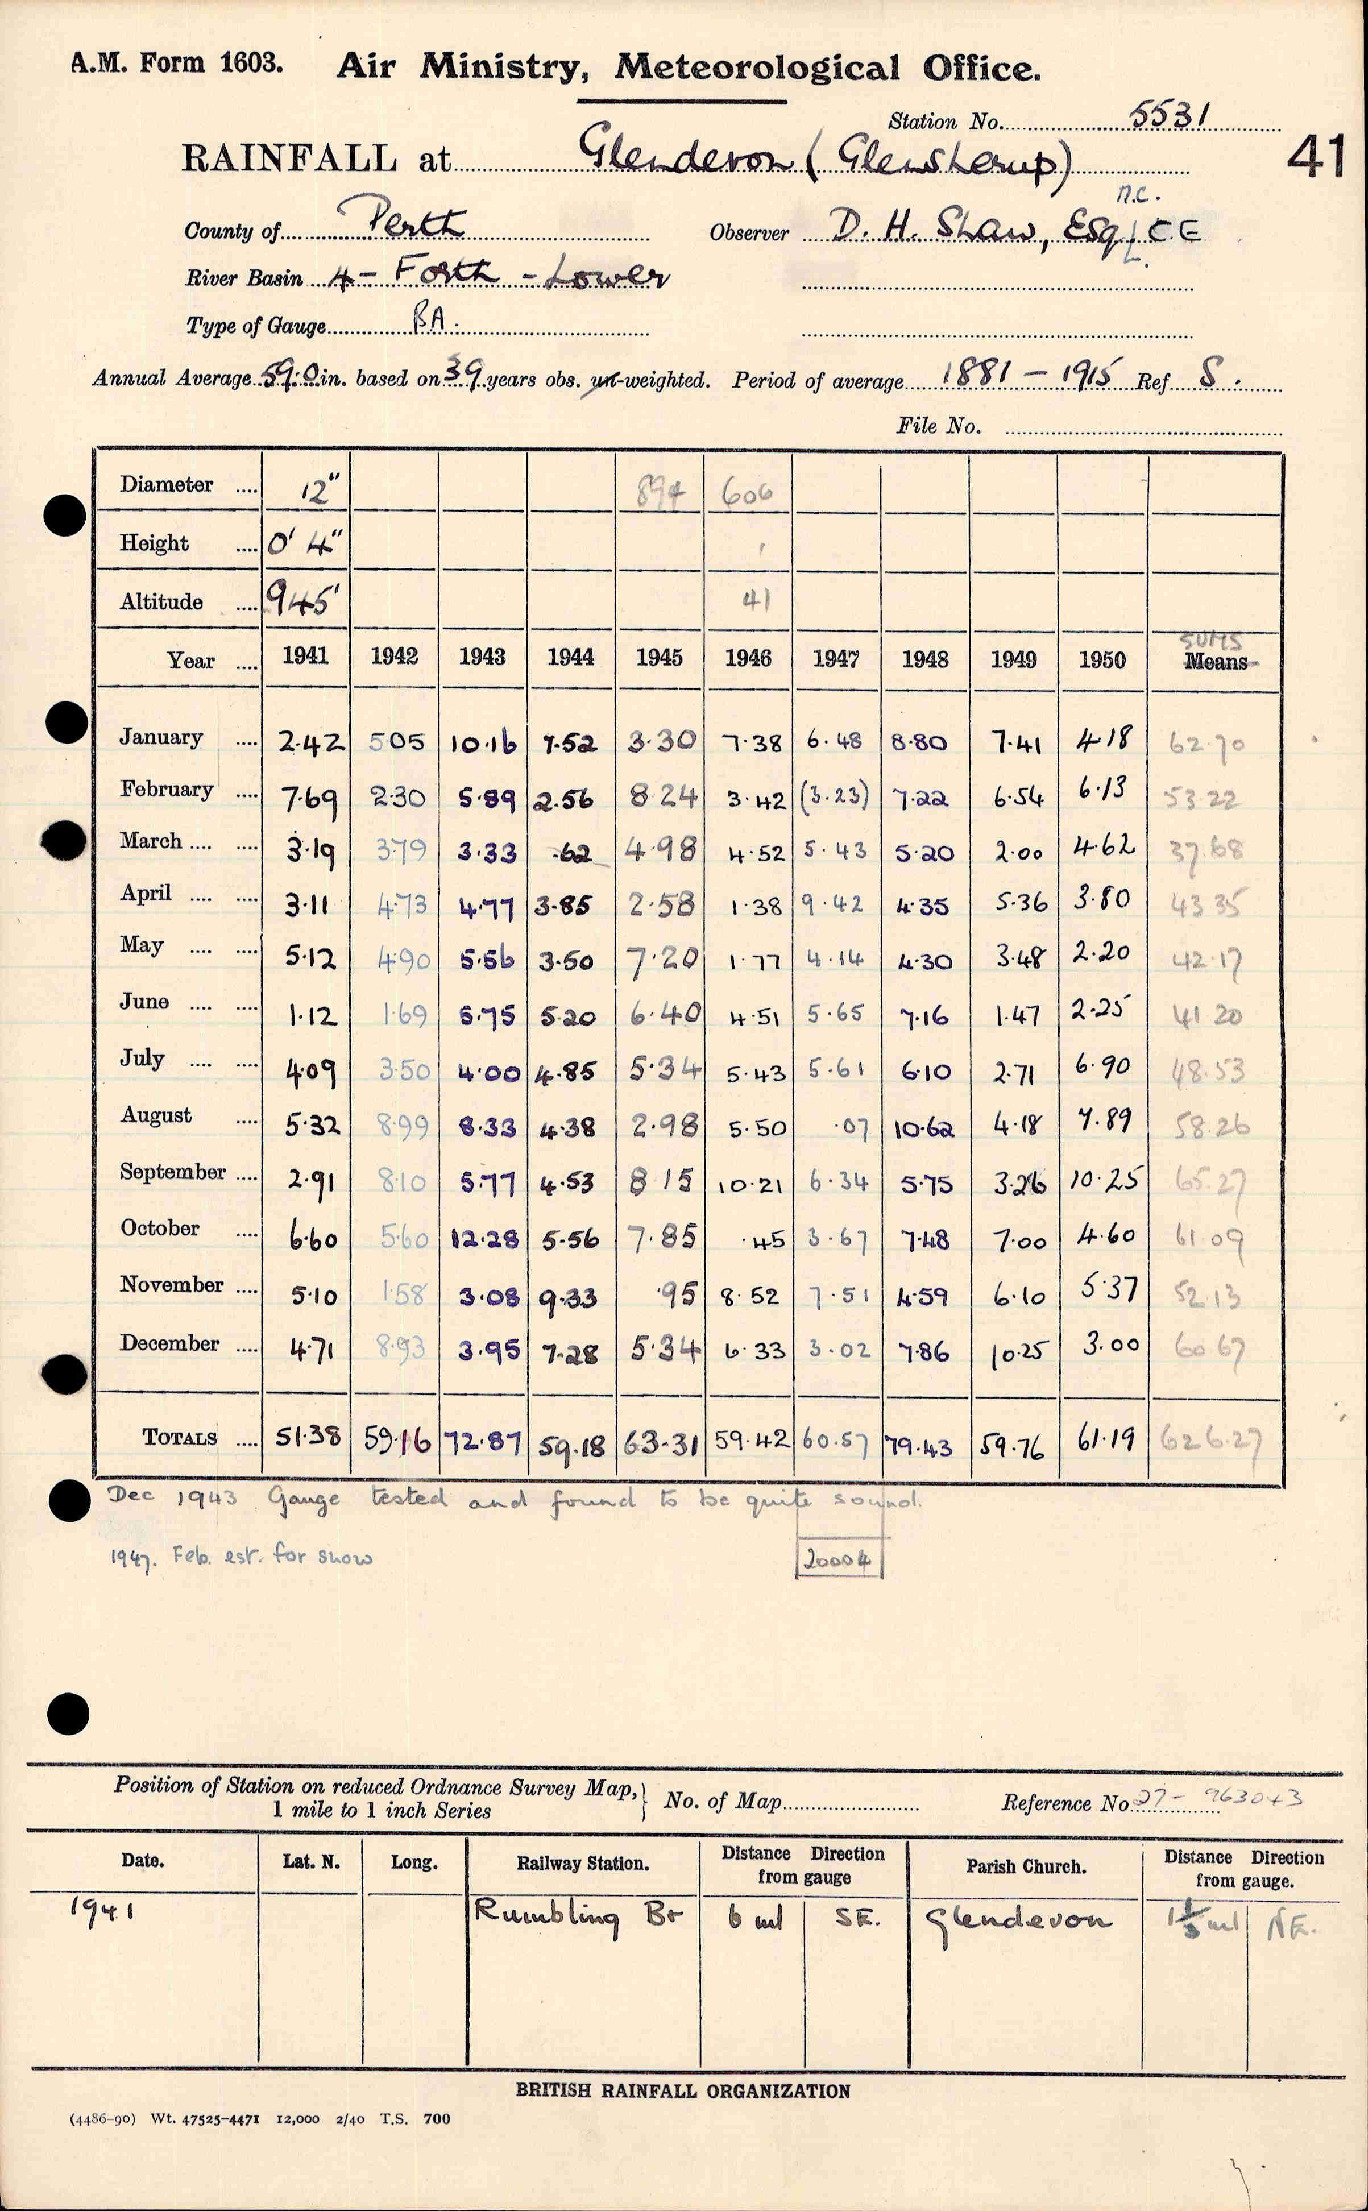 A.M. Form 1603. Air Ministry, Meteorological Office.
Station No. 5531
RAINFALL at Glendevon (Glensherup) 41
M.C.
County of Perth Observer D. H. Shaw, Esq., C E
River Basin 4 - Forth - Lower
Type of Gauge B.A.
Annual Average 59.0 in. based on 39 years obs. un-weighted. Period of average 1881 - 1915 Ref S.
File No.
Diameter .... 12" 894 606
Height .... 0' 4"
Altitude .... 945' 41
SUMS
Year .... 1941 1942 1943 1944 1945 1946 1947 1948 1949 1950 Means
January .... 2.42 5.05 10.16 7.52 3.30 7.38 6.48 8.80 7.41 4.18 62.70
February .... 7.69 2.30 5.89 2.56 8.24 3.42 (3.23) 7.22 6.54 6.13 53.22
March .... .... 3.19 3.79 3.33 .62 4.98 4.52 5.43 5.20 2.00 4.62 37.68
April .... .... 3.11 4.73 4.77 3.85 2.58 1.38 9.42 4.35 5.36 3.80 43.35
May .... .... 5.12 4.90 5.56 3.50 7.20 1.77 4.14 4.30 3.48 2.20 42.17
June .... .... 1.12 1.69 5.75 5.20 6.40 4.51 5.65 7.16 1.47 2.25 41.20
July .... .... 4.09 3.50 4.00 4.85 5.34 5.43 5.61 6.10 2.71 6.90 48.53
August .... 5.32 8.99 8.33 4.38 2.98 5.50 .07 10.62 4.18 7.89 58.26
September .... 2.91 8.10 5.77 4.53 8.15 10.21 6.34 5.75 3.26 10.25 65.27
October .... 6.60 5.60 12.28 5.56 7.85 .45 3.67 7.48 7.00 4.60 61.09
November .... 5.10 1.58 3.08 9.33 .95 8.52 7.51 4.59 6.10 5.37 52.13
December .... 4.71 8.93 3.95 7.28 5.34 6.33 3.02 7.86 10.25 3.00 60.67
TOTALS .... 51.38 59.16 72.87 59.18 63.31 59.42 60.57 79.43 59.76 61.19 626.27
Dec 1943 Gauge tested and found to be quite sound.
1947. Feb. est. for snow 20004
Position of Station on reduced Ordnance Survey Map,
1 mile to 1 inch Series } No. of Map Reference No. 27 - 963043
Date. Lat. N. Long. Railway Station. Distance Direction from gauge Parish Church. Distance Direction from gauge.
1941 Rumbling Br 6 ml SE. Glendevon NE.
BRITISH RAINFALL ORGANIZATION
(4486-90) Wt. 47525-4471 12,000 2/40 T.S. 700